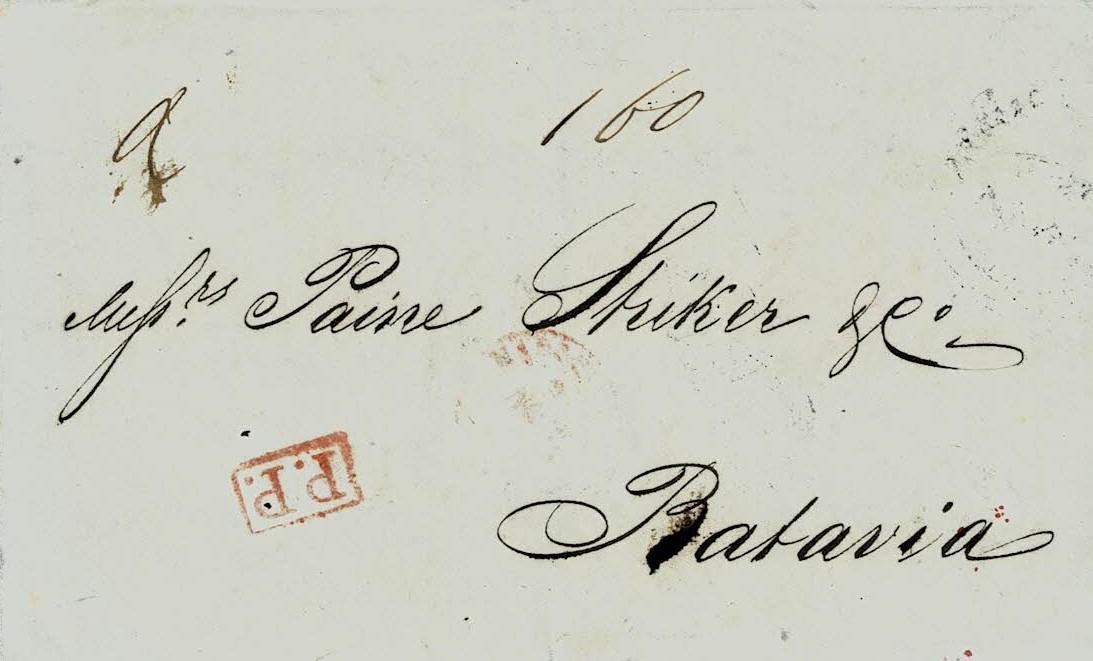 160
Messrs Paine Striker & Co.
P.P.
Batavia